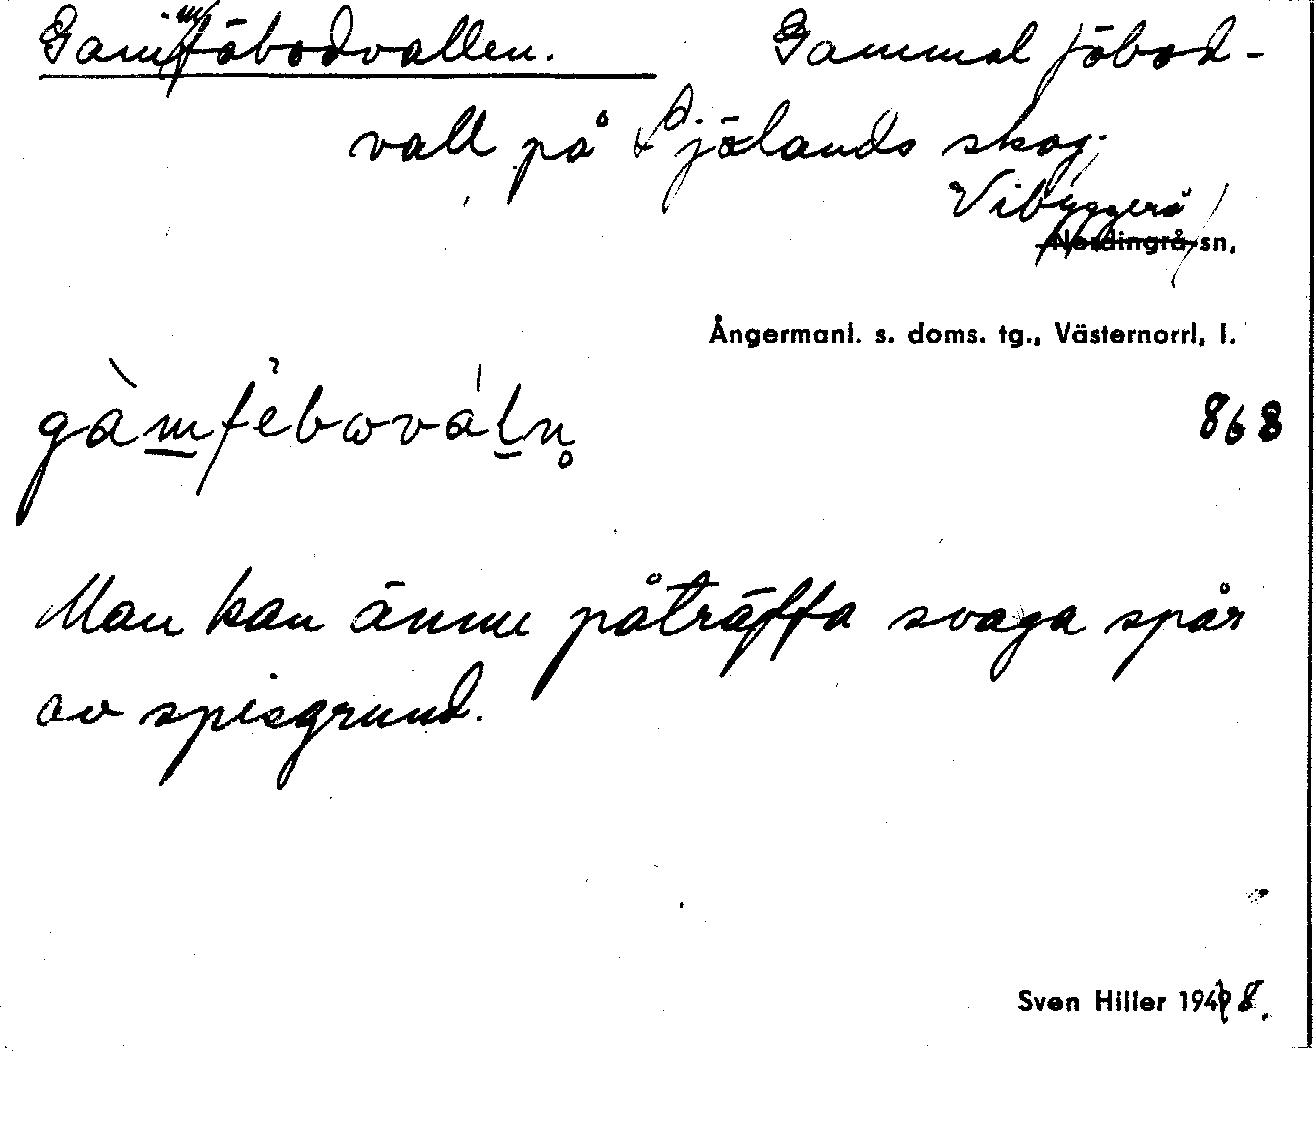 Gammföbodvallen. Gammal föbod-
vall på Sjölands skog.
Vibyggerå
Nordingrå sn,
Ångermanl. s. doms. tg., Västernorrl. l.
868
Man kan ännu påträffa svaga spår
av spisgrund.
Sven Hiller 1948.